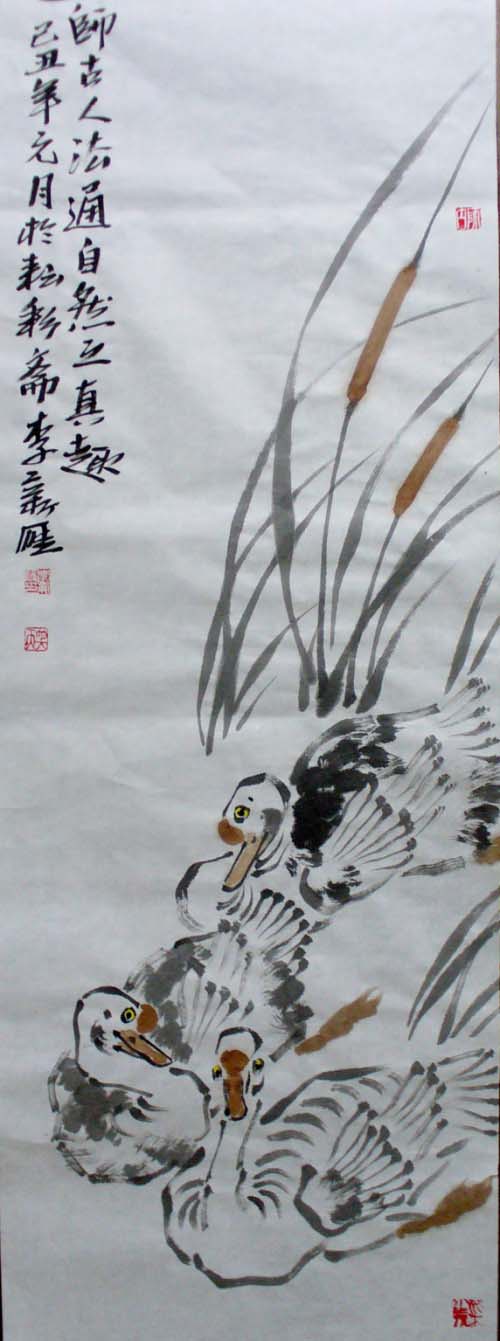 師古人法通自然之真趣
己丑年元月於耘彩齋李新